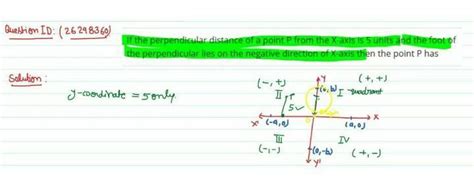 Question ID: (26298360)
If the perpendicular distance of a point P from the X-axis is 5 units and the foot of
the perpendicular lies on the negative direction of X-axis then the point P has
Solution:
y-coordinate = 5 only.
(-, +)
Y
(+, +)
II
P
(0, b)
I - quadrant
5
X'
(-a, 0)
(a, 0)
X
III
IV
(-, -)
(0, -b)
(+, -)
Y'